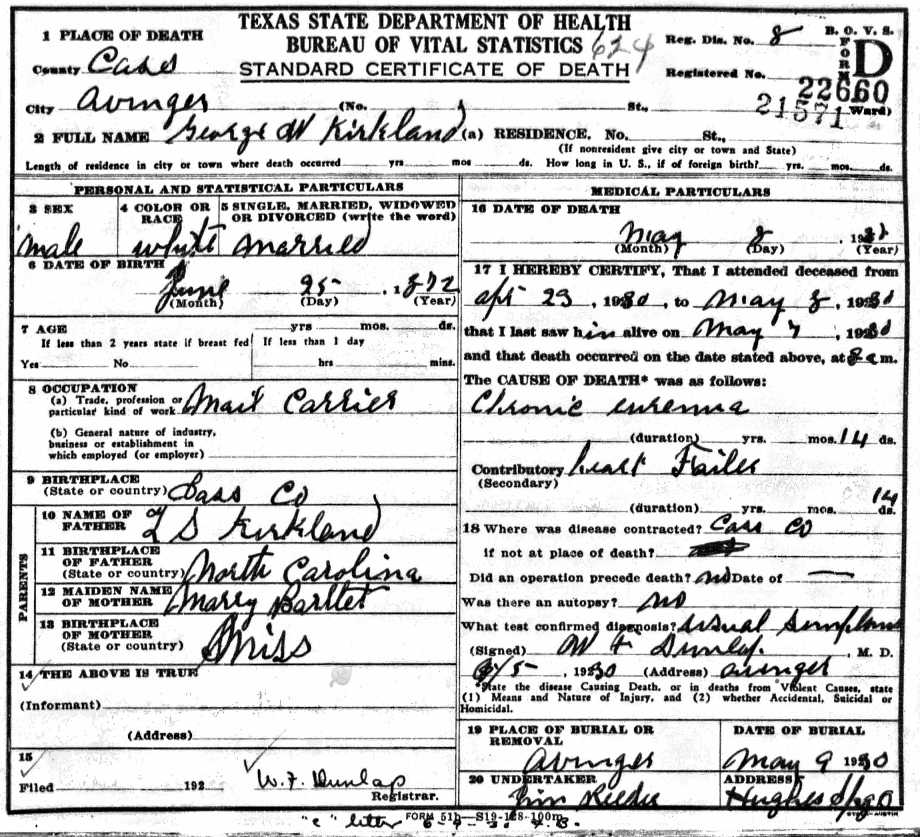 TEXAS STATE DEPARTMENT OF HEALTH
BUREAU OF VITAL STATISTICS 624
STANDARD CERTIFICATE OF DEATH
B. O. V. S.
FORM D
Reg. Dis. No. 8
Registered No. 22660
21571
1 PLACE OF DEATH
County Cass
City Avinger (No. St., Ward)
2 FULL NAME George W Kirkland (a) RESIDENCE. No. St.,
(If nonresident give city or town and State)
Length of residence in city or town where death occurred yrs mos ds. How long in U. S., if of foreign birth? yrs. mos. ds.
PERSONAL AND STATISTICAL PARTICULARS
3 SEX
male
4 COLOR OR RACE
white
5 SINGLE, MARRIED, WIDOWED OR DIVORCED (write the word)
married
6 DATE OF BIRTH
June 25 , 1872
(Month) (Day) (Year)
7 AGE yrs mos. ds.
If less than 2 years state if breast fed If less than 1 day
Yes No hrs mins.
8 OCCUPATION
(a) Trade, profession or particular kind of work Mail Carrier
(b) General nature of industry, business or establishment in which employed (or employer)
9 BIRTHPLACE
(State or country) Cass Co
PARENTS
10 NAME OF FATHER S Kirkland
11 BIRTHPLACE OF FATHER
(State or country) North Carolina
12 MAIDEN NAME OF MOTHER Marey Bartlet
13 BIRTHPLACE OF MOTHER
(State or country) Miss
14 THE ABOVE IS TRUE
(Informant)
(Address)
15
Filed 192 W. F. Dunlap
Registrar.
MEDICAL PARTICULARS
16 DATE OF DEATH
May 8 , 19
(Month) (Day) (Year)
17 I HEREBY CERTIFY, That I attended deceased from
Apr 23 , 1930 , to May 8 , 1930
that I last saw him alive on May 7 , 1930
and that death occurred on the date stated above, at 8 a m.
The CAUSE OF DEATH* was as follows:
Chronic
(duration) yrs. mos. 14 ds.
Contributory heart
(Secondary)
(duration) yrs. mos. 14 ds.
18 Where was disease contracted? Cass Co
if not at place of death?
Did an operation precede death? no Date of —
Was there an autopsy? no
What test confirmed diagnosis? usual
(Signed) W F Dunlap. , M. D.
, 1930 (Address) Avinger
*State the disease Causing Death, or in deaths from Violent Causes, state
(1) Means and Nature of Injury, and (2) whether Accidental, Suicidal or
Homicidal.
19 PLACE OF BURIAL OR REMOVAL
Avinger
DATE OF BURIAL
May 9 1930
20 UNDERTAKER
Jim Reeder
ADDRESS
Hughes Spgs
FORM 51b—S19-128-100m
"c" letter